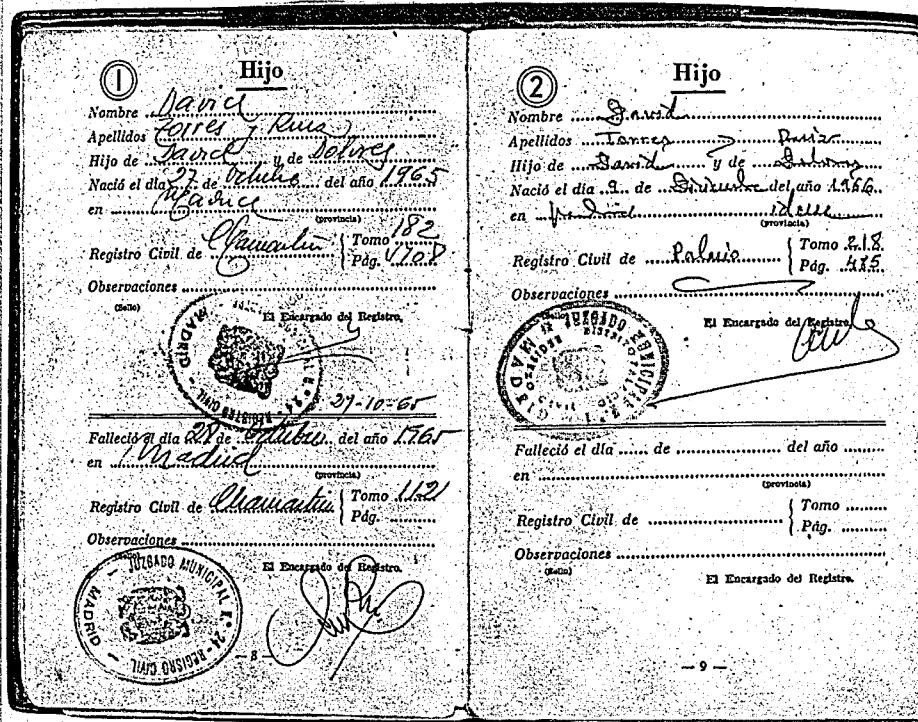 1
Hijo
Nombre David
Apellidos Torres y Ruiz
Hijo de David y de Dolores
Nació el día 27 de Octubre del año 1965
en Madrid
(provincia)
Registro Civil de Chamartín Tomo 182
Pág. 170 8
Observaciones
(Sello)
El Encargado del Registro,
MADRID
REGISTRO CIVIL
27-10-65
Falleció el día 28 de Octubre del año 1965
en Madrid
(provincia)
Registro Civil de Chamartín Tomo 1121
Pág.
Observaciones
(Sello)
El Encargado del Registro,
JUZGADO MUNICIPAL N.º 24 - REGISTRO CIVIL - MADRID
— 8 —
2
Hijo
Nombre David
Apellidos Torres y Ruiz
Hijo de David y de Dolores
Nació el día 9 de Diciembre del año 1966
en Madrid idem
(provincia)
Registro Civil de Palacio Tomo 218
Pág. 485
Observaciones
(Sello)
El Encargado del Registro,
JUZGADO MUNICIPAL
DISTRITO PALACIO
Falleció el día de del año
en
(provincia)
Registro Civil de Tomo
Pág.
Observaciones
(Sello)
El Encargado del Registro,
— 9 —